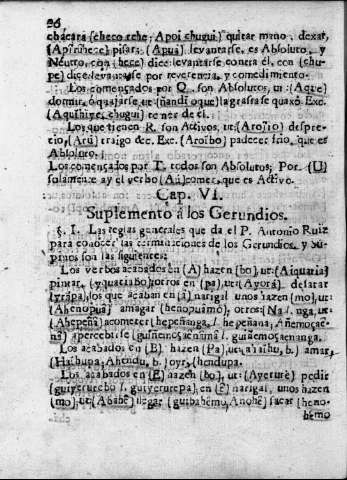 96
chácara (checo rehe, Apoi chugui) quitar mano, dexar,
(Apirũhece) pisar; (Apuã) levantarse, es Absoluto, y
Neutro, con (hece) dice levantarse contra él, con (chu-
pe) dice levantarse por reverencia, y comedimiento.
Los començados por Q. son Absolutos, ut: (Aque)
dormir, o quajarse, ut:
chugui) temer de él.
Los que tienen R. son Activos, ut: (Aroĩro) despre-
cio, (Arũ) traigo &c. Exc. (Aroĩbo) padecer frio, que es
Absoluto.
Los començados por T. todos son Absolutos; Por (U)
solamente ay él verbo (Aú) comer, que es Activo.
Cap. VI.
Suplemento á los Gerundios.
§. I. Las reglas generales que da el P. Antonio Ruiz
para conocer las terminaciones de los Gerundios, y Su-
pinos son las siguientes:
Los verbos acabados en (A) hazen (bo), ut: (Aiquatia)
pintar, (yquatiabo) otros en (pa), ut: (Ayorá) desatar
(yrápa), los que acaban en (ã) narigal unos hazen (mo), ut:
(Ahenopuã) amagar (henopuámó), otros: (Na l. nga, ut:
(Ahepeñã) acometer (hepeñanga, l. hepeñana, Añemoçae-
nã) apercebirse
Los acabados en (E) hazen (Pa), ut: b.) amar,
(Haihupa, Ahendu, b.) oyr, (hendupa.
Los acabados en (E) hazen (bo), ut: (Ayerure) pedir
(guiyerurebo l. guiyerurepa), en (ẽ) narigal, unos hazen
(mo), ut: (Ababẽ) llegar (guibahẽmo, Anohẽ) sacar (heno-
hẽmo